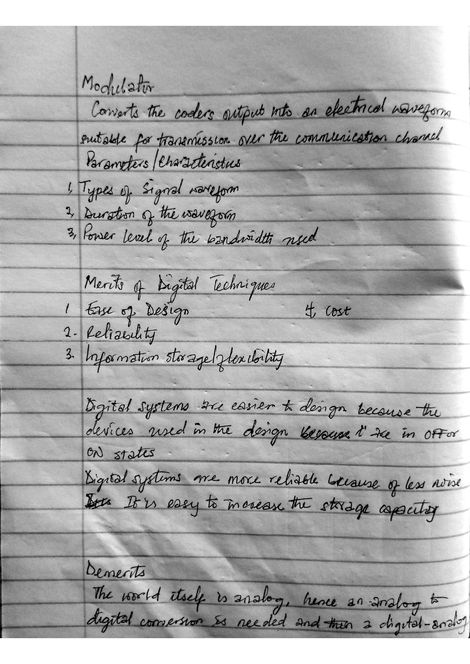 Modulator
Converts the coders output into an electrical waveform
suitable for transmission over the communication channel
Parameters/Characteristics
1, Types of Signal waveform
2, Duration of the waveform
3, Power level of the bandwidth used
Merits of Digital Techniques
1 Ease of Design 4, Cost
2. Reliability
3. Information storage/flexibility
Digital systems are easier to design because the
devices used in the design are in OFF or
ON states
Digital systems are more reliable because of less noise
It is easy to increase the storage capacity
Demerits
The world itself is analog, hence an analog to
digital conversion is needed and then a digital-analog